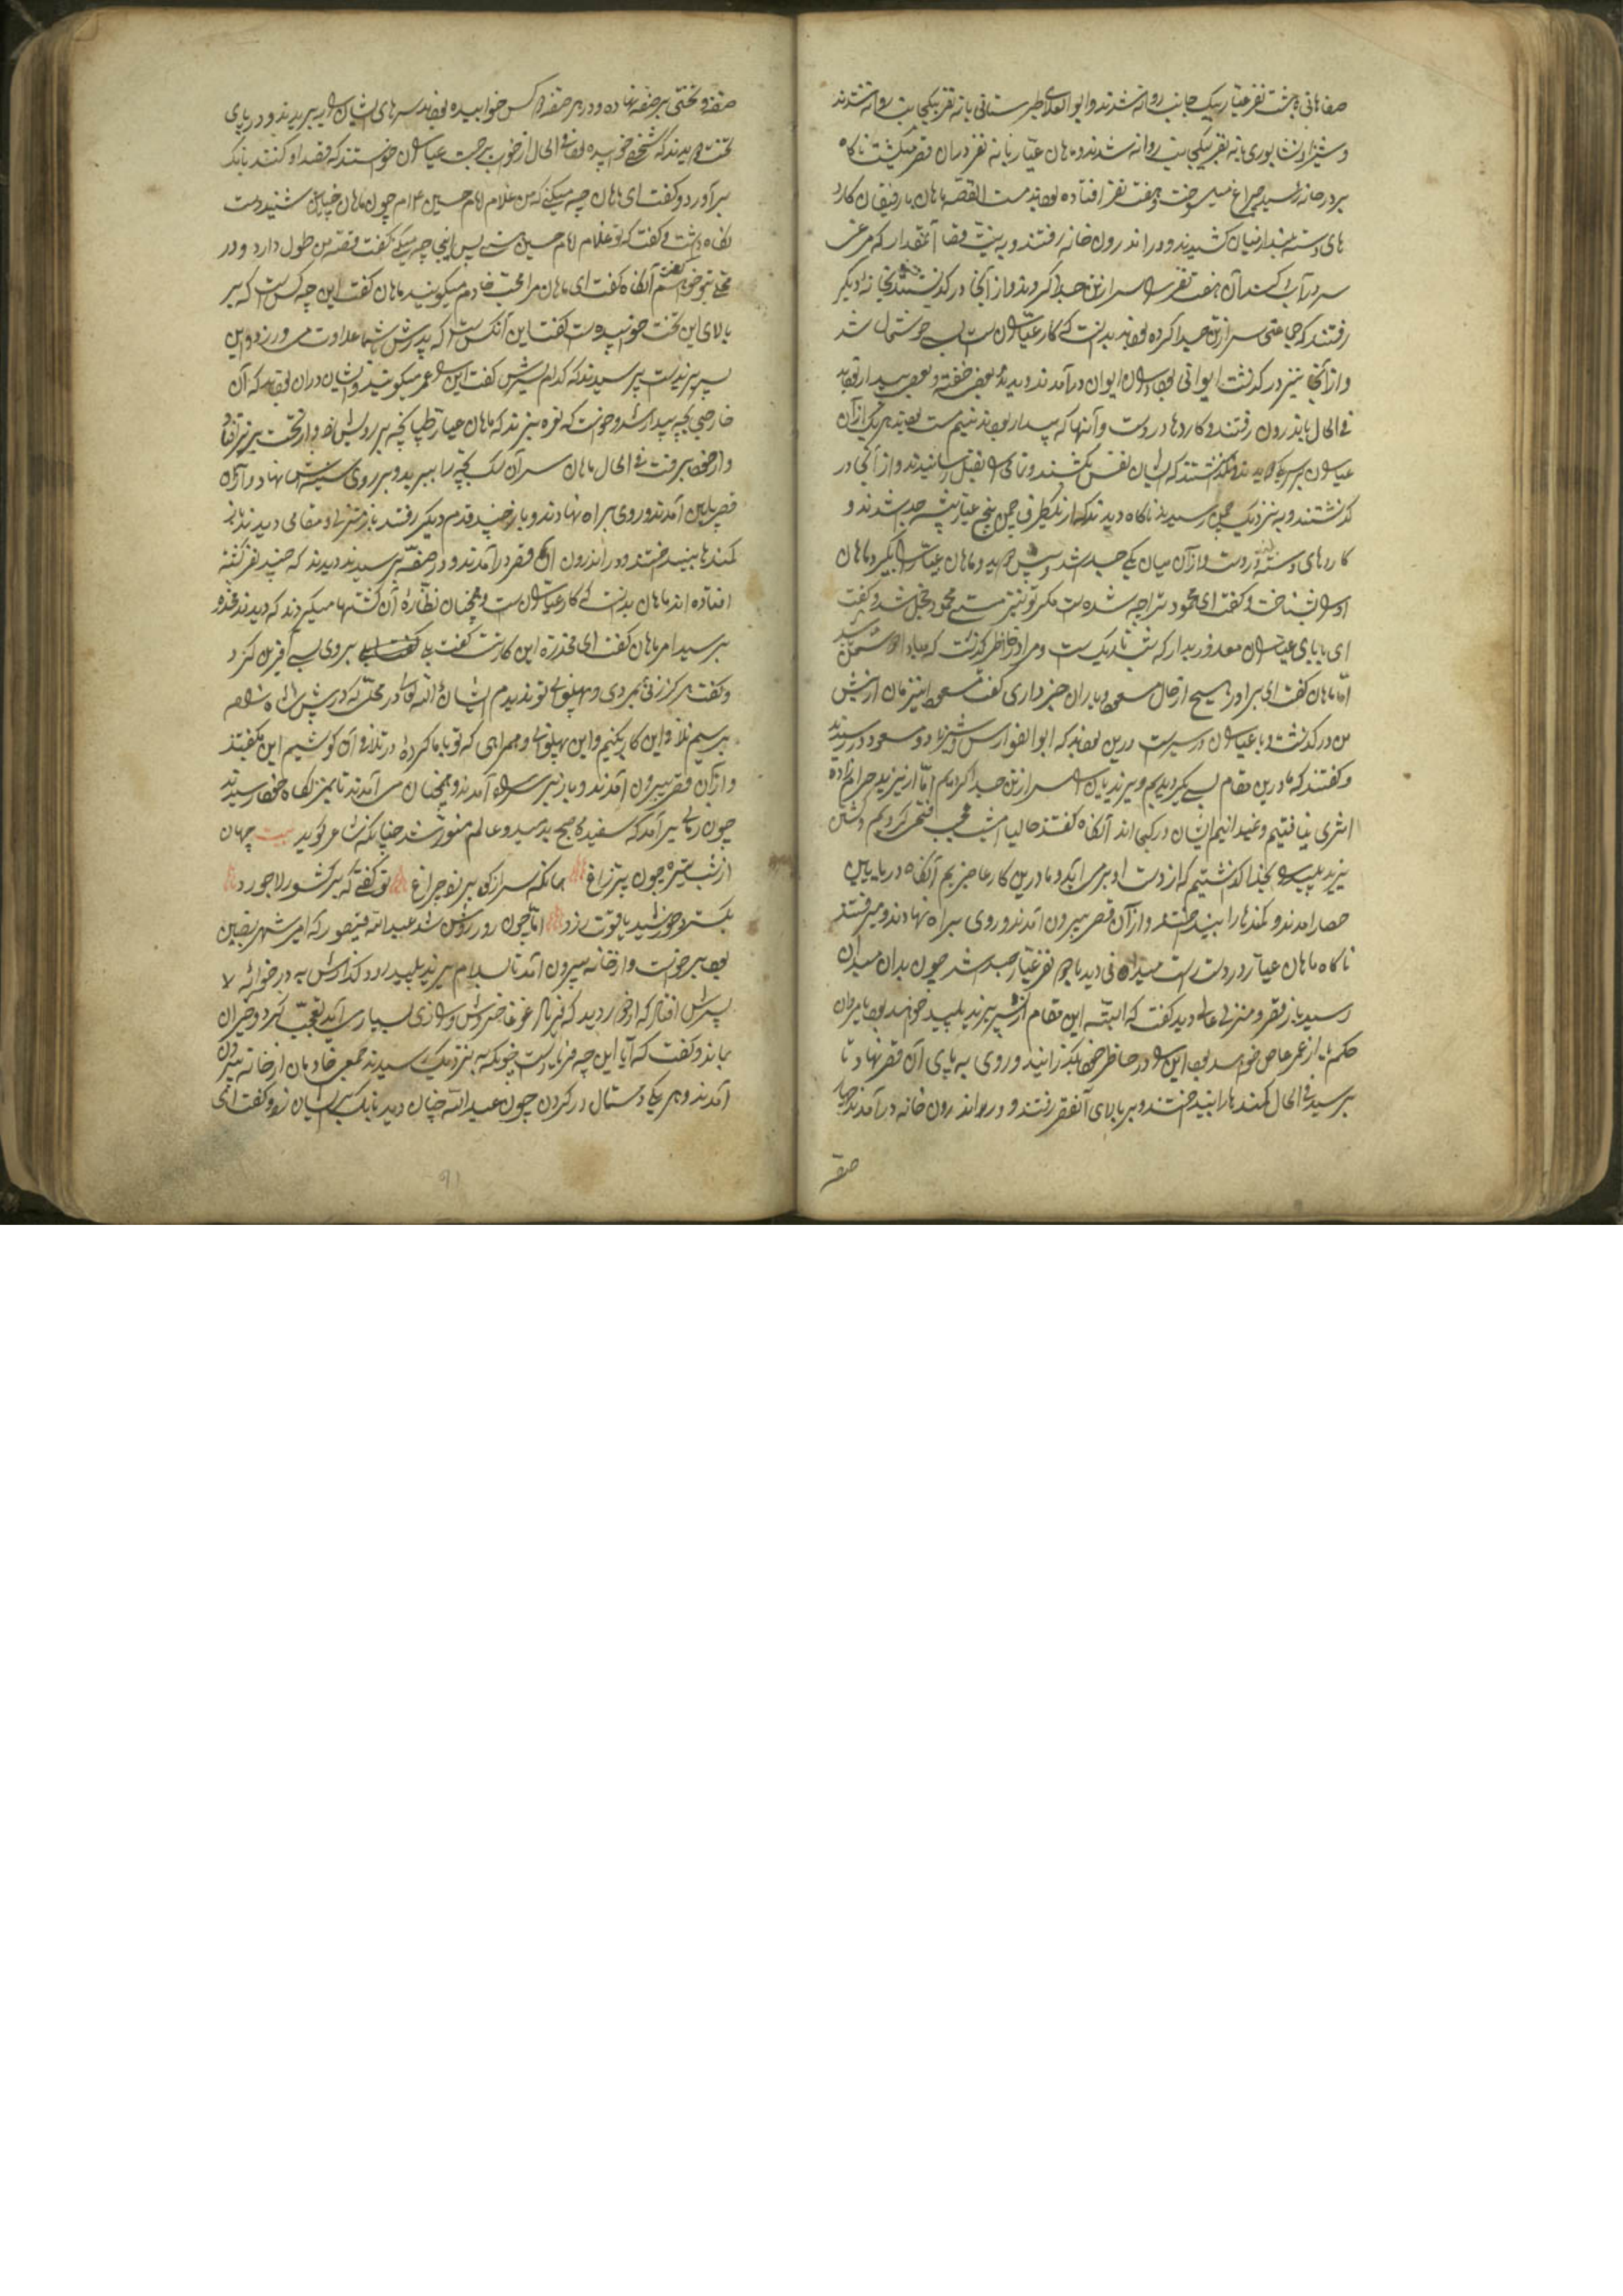 صفاهانی با هشت نفر عیار بیک جانب روانه شدند و ابوالعلای طبرستانی با نه نفر بیکجانب روانه شدند
و شیرزاد نشابوری با نه نفر بیکجانب روانه شدند و ماهان عیار با نه نفر در آن قصر میگشت ناگاه
بر در خانه رسید چراغ میسوخت و هفت نفر افتاده بودند مست القصه ماهان با رفیقان کارد
های دسته از میان کشیدند و در اندرون خانه رفتند و به نیت قضا آنمقدار که مرغی
سر در آب کند آن هفت نفر را سر از تن جدا کردند و از آنجا در گذشتند بخانه دیگر
رفتند که جماعتی سر از تن جدا کرده بودند بدانست که کار عیاران است بسی خوشحال شد
و از آنجا نیز در گذشت ایوانی بود در آن ایوان در آمدند دیدند بعضی خفته و بعضی بیدار بودند
فی الحال باندرون رفتند و کاردها در دست و آنها که بیدار بودند نیم مست بودند هر یک از آن
عیاران بر سر یک دویدند و نگذاشتند که ایشان نفس بکشند و تمامی را بقتل رسانیدند و از آنجا در
گذشتند و به نزدیک چمن رسیدند ناگاه دیدند که از یکطرف چمن پنج عیار پیشه پیدا شدند و
کاردهای دسته در دست و از آن میان یکی جدا شد و پیش دوید و ماهان عیار را بگیرد ماهان
او را بشناخت و گفت ای محمود ترا چه شده است مگر تو نیز مستی محمود خجل شد و گفت
ای بابای عیاران معذور بدار که شب تاریک است و مرا در خاطر گذشت که مبادا دشمن رسد
اما ماهان گفت ای برادر هیچ از حال مسعود و یاران خبر داری گفت مسعود این زمان از پیش
من در گذشت و با عیاران در سیر است درین بودند که ابوالفوارس و شیرزاد و مسعود در رسیدند
و گفتند که ما درین مقام بسی بگردیدیم و یزیدیان را سر از تن جدا کردیم اما از یزید حرامزاده
اثری نیافتیم و نمیدانیم ایشان در کجا اند آنگاه گفتند حالیا امشب فتحی کردیم و کشتن
یزید پلید را بخدا گذاشتیم که از دست او بر می آید و ما درین کار عاجزیم آنگاه در پایین
حصار آمدند و کمندها را بینداختند و از آن قصر بیرون آمدند و روی براه نهادند و میرفتند
ناگاه ماهان عیار در دست راست میدانی دید با دو نفر عیار جدا شد چون بدان میدان
رسید باز قصر و منزلی عالی دید گفت که البته این مقام از پسر یزید پلید خواهد بود یا مروان
حکم یا از عمر عاص خواهد بود این را در خاطر خود بگذرانید و روی به پای آن قصر نهاد تا
برسید فی الحال کمندها را بینداختند و بر بالای آنقصر رفتند و در اندرون خانه در آمدند چهار
صفه
صفه و تختی بر صفه نهاده و در هر صفه دو کس خوابیده بودند سرهای ایشان را ببریدند و در پای
تخت دیدند که شخصی خوابیده بود فی الحال از خواب برجست عیاران خواستند که قصد او کنند بانگ
برآورد و گفت ای ماهان چه میکنی که من غلام امام حسین ام چون ماهان چنان شنید دست
نگاه داشت و گفت که تو غلام امام حسینی پس اینجا چه میکنی گفت قصه من طول دارد و در
محلی بتو خواهم گفت آنگاه گفت ای ماهان مرا محب خادم میگویند ماهان گفت این چه کس است که بر
بالای این تخت خوابیده است گفت این آنکس است که پدرش باشما عداوت می ورزد و این
پسر یزید است پرسیدند که کدام پسرش گفت این را عمر میگویند و ایشان در آن بودند که آن
خارجی بچه بیدار شد و خواست که نعره بزند که ماهان عیار طپانچه بر رویش زد و از تخت بزیر افتاد
و از خود برفت فی الحال ماهان سر آن سگ بچه را ببرید و بر روی سینه اش نهاد و از آن
قصر پایین آمدند و روی براه نهادند و باز چند قدم دیگر رفتند باز منزلی و مقامی دیدند باز
کمندها بینداختند و در اندرون آن قصر در آمدند و در صفه برسیدند دیدند که چند نفر کشته
افتاده اند ماهان بدانست که کار عیاران است و همچنان نظاره آن کشتها میکردند که دیدند مخدره
برسید امیر ماهان گفت ای مخدره این کار تست گفت بلی بر وی بسی آفرین کرد
و گفت هرگز زنی بمردی و پهلوانی تو ندیدم انشاءالله تعالی در محلی که در پیش شاه
برسیم تلافی این کار بکنیم و این پهلوانی و همراهی که تو با ما کرده در تلافی آن کوشیم این بگفتند
و از آن قصر بیرون آمدند و باز بر سر راه آمدند و همچنان می آمدند تا بمنزلگاه خود رسیدند
چون زمانی برآمد که سفیده صبح بدمید و عالم منور شد چنانکه شاعر گوید بیت جهان
از شب تیره چون پر زاغ همانگه سر از کوه بر زد چراغ تو گفتی که بر کشور لاجورد
بگسترد خورشید یاقوت زرد اما چون روز روشن شد عبدالله قیصور که امیر شهر یقین
بود برخواست و از خانه بیرون آمد تا بسلام یزید پلید رود گذارش به در خوانه
پسرش افتاد که از دور دید که فریاد و غوغا و خروش و زاری بسیار می آید تعجب کرد و حیران
بماند و گفت که آیا این چه فریاد است چونکه به نزدیک رسیدند جمعی خادمان از خانه بیرون
آمدند و هر یکی دستمال در گردن چون عبدالله چنان دید بانگ بر ایشان زد و گفت ای
۹۱